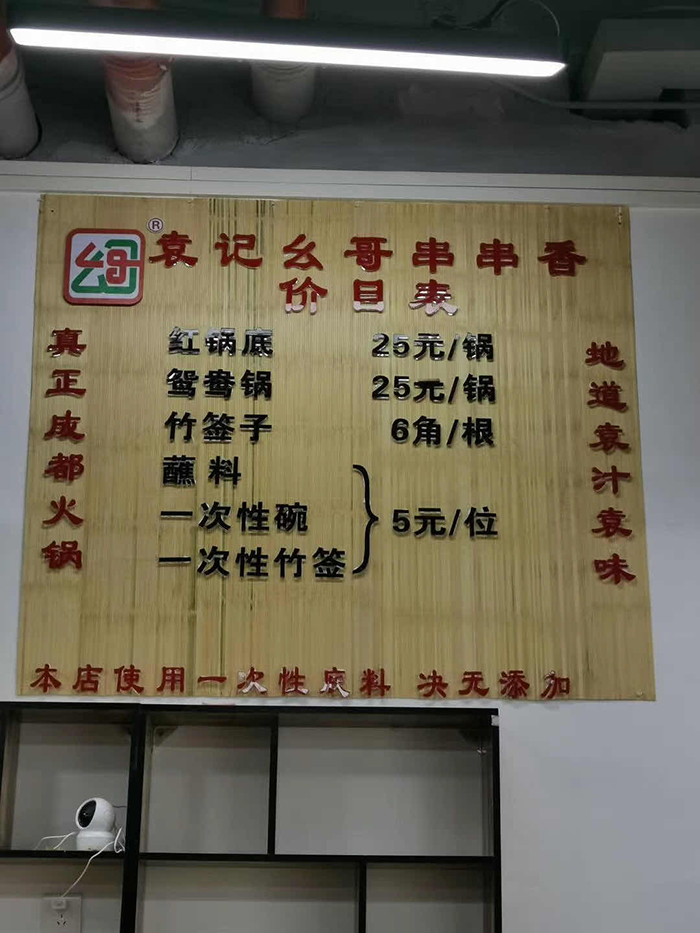 ®
袁记幺哥串串香
价目表
真正成都火锅
红锅底 25元/锅
鸳鸯锅 25元/锅
竹签子 6角/根
蘸料
一次性碗 5元/位
一次性竹签
地道袁汁袁味
本店使用一次性底料 决无添加